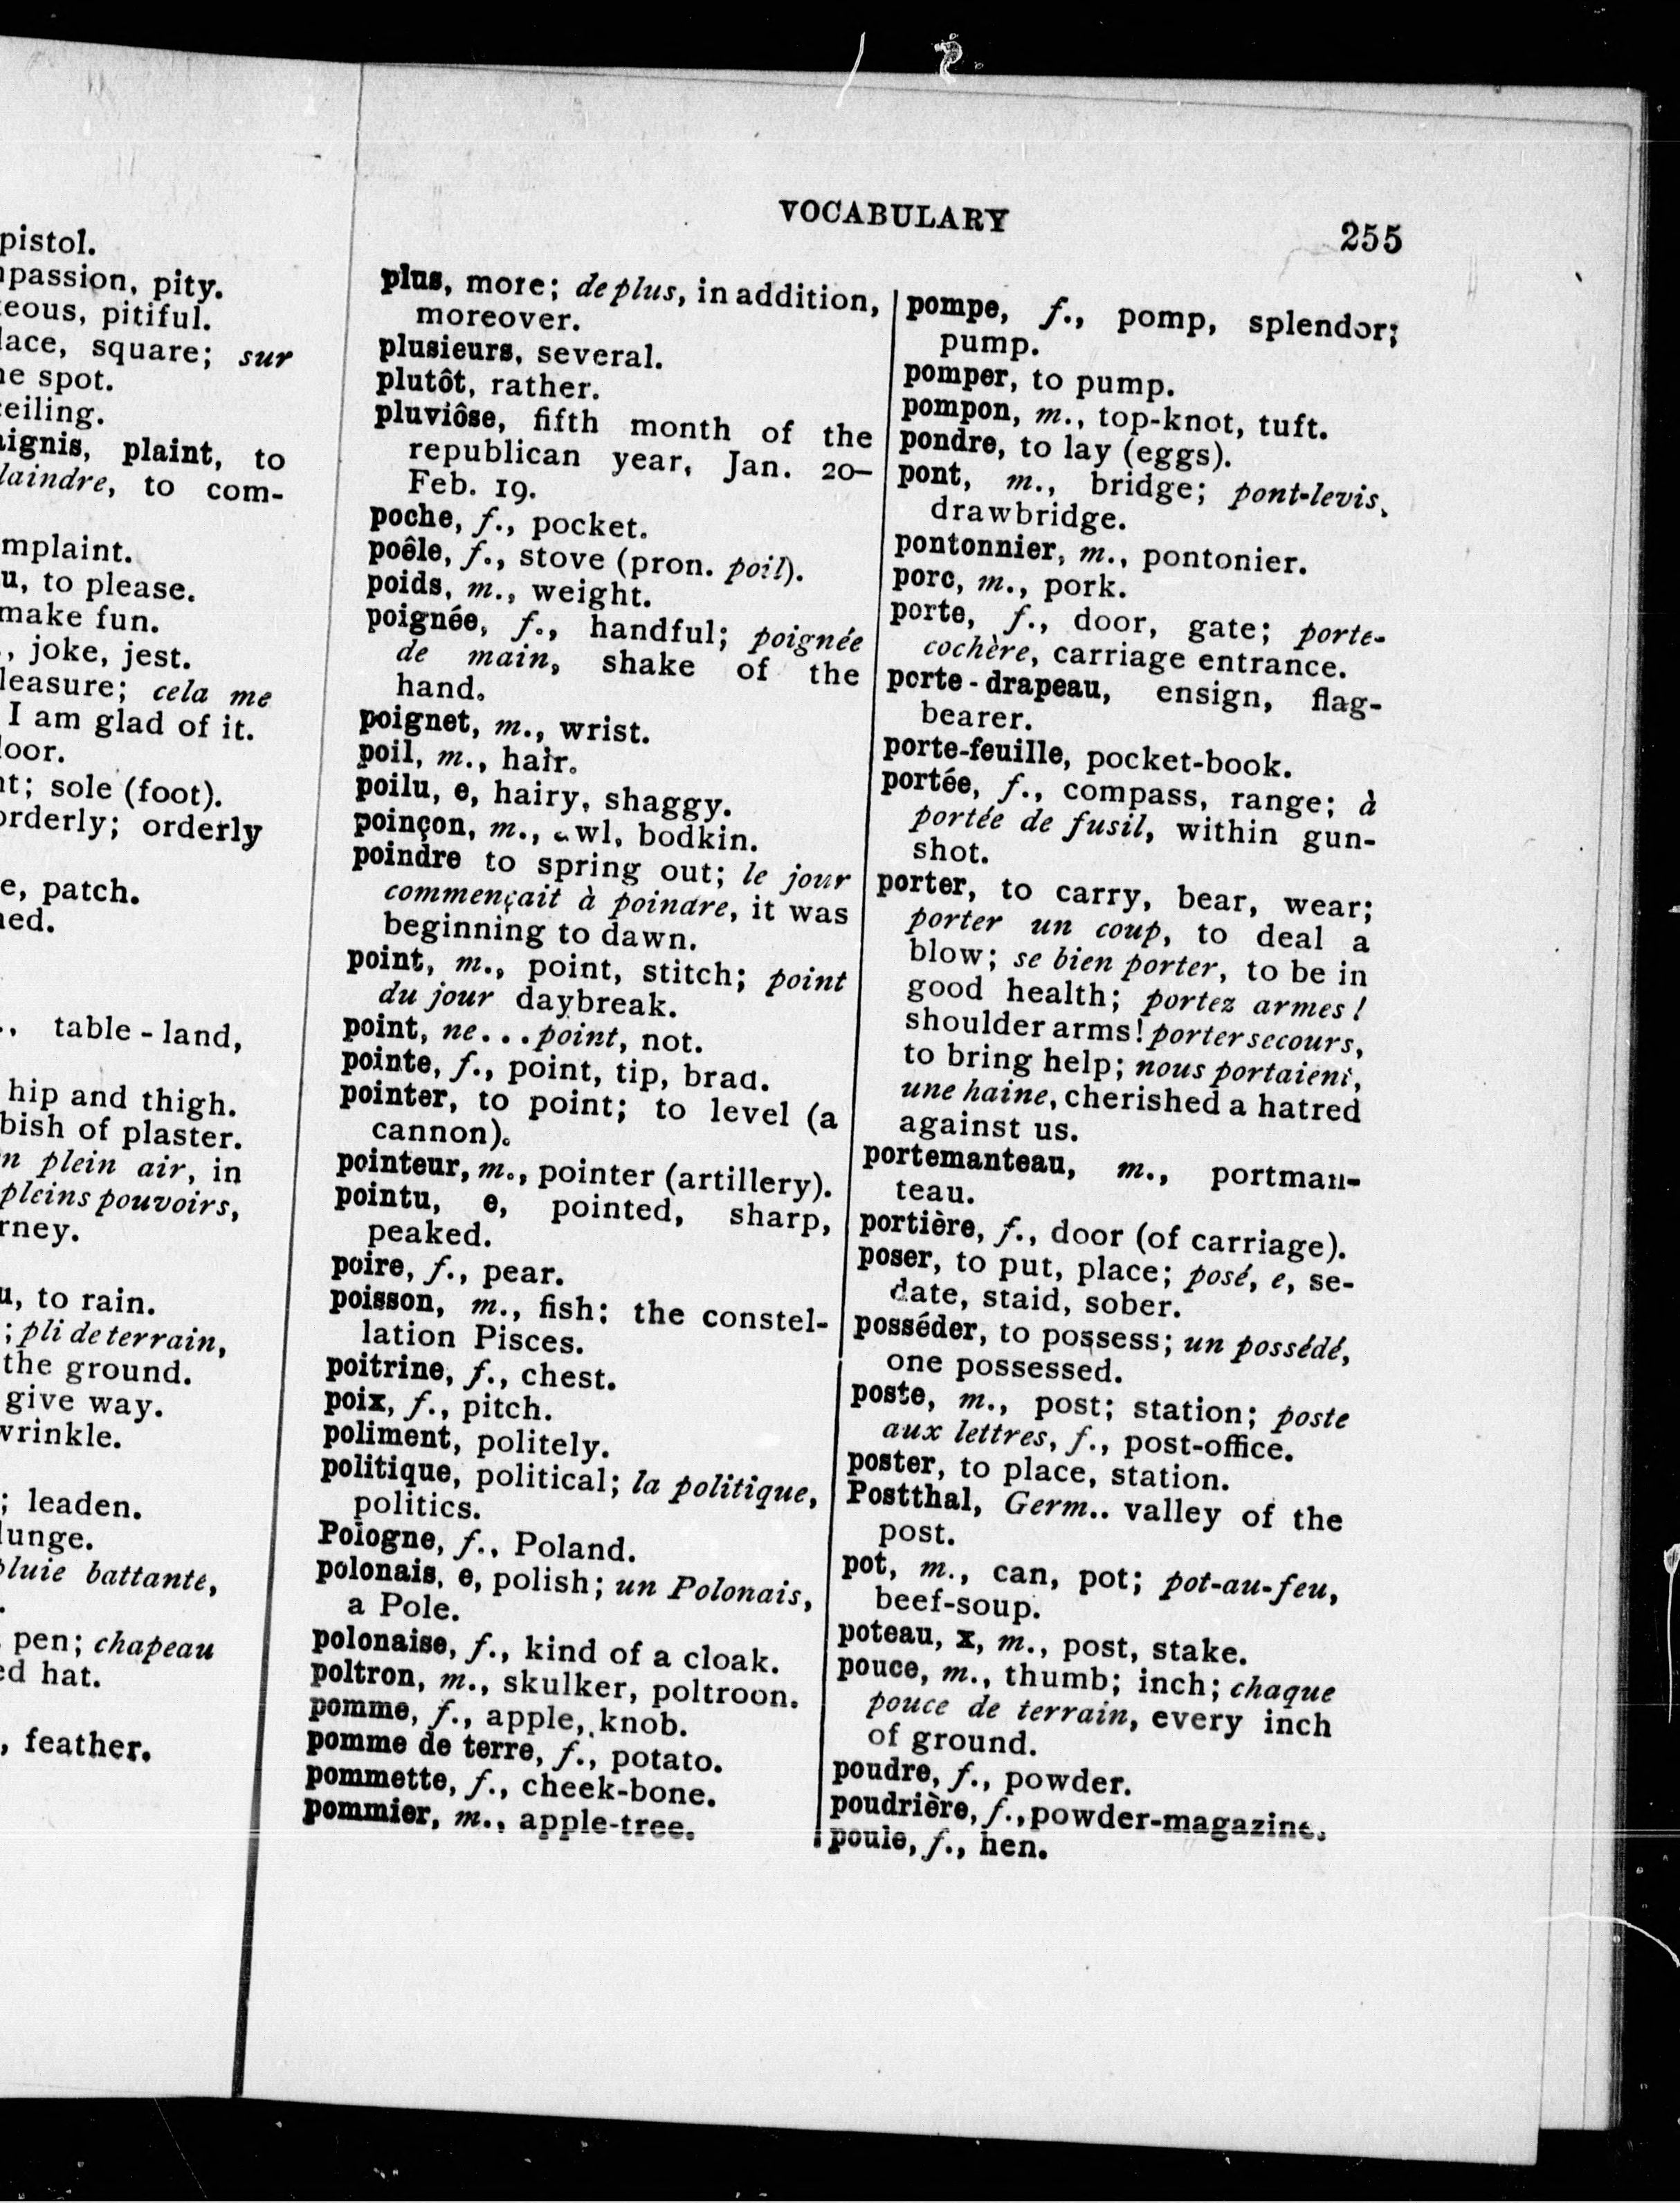 pistol.
passion, pity.
eous, pitiful.
lace, square; sur
e spot.
ceiling.
aignis, plaint, to
laindre, to com-
mplaint.
u, to please.
make fun.
., joke, jest.
leasure; cela me
I am glad of it.
loor.
nt; sole (foot).
orderly; orderly
e, patch.
ned.
., table-land,
hip and thigh.
bish of plaster.
n plein air, in
pleins pouvoirs,
rney.
u, to rain.
; pli de terrain,
the ground.
give way.
wrinkle.
; leaden.
lunge.
pluie battante,
pen; chapeau
ed hat.
, feather.
VOCABULARY
255
plus, more; de plus, in addition,
moreover.
plusieurs, several.
plutôt, rather.
pluviôse, fifth month of the
republican year, Jan. 20–
Feb. 19.
poche, f., pocket.
poêle, f., stove (pron. poil).
poids, m., weight.
poignée, f., handful; poignée
de main, shake of the
hand.
poignet, m., wrist.
poil, m., hair.
poilu, e, hairy, shaggy.
poinçon, m., awl, bodkin.
poindre to spring out; le jour
commençait à poindre, it was
beginning to dawn.
point, m., point, stitch; point
du jour daybreak.
point, ne...point, not.
pointe, f., point, tip, brad.
pointer, to point; to level (a
cannon).
pointeur, m., pointer (artillery).
pointu, e, pointed, sharp,
peaked.
poire, f., pear.
poisson, m., fish; the constel-
lation Pisces.
poitrine, f., chest.
poix, f., pitch.
poliment, politely.
politique, political; la politique,
politics.
Pologne, f., Poland.
polonais, e, polish; un Polonais,
a Pole.
polonaise, f., kind of a cloak.
poltron, m., skulker, poltroon.
pomme, f., apple, knob.
pomme de terre, f., potato.
pommette, f., cheek-bone.
pommier, m., apple-tree.
pompe, f., pomp, splendor;
pump.
pomper, to pump.
pompon, m., top-knot, tuft.
pondre, to lay (eggs).
pont, m., bridge; pont-levis,
drawbridge.
pontonnier, m., pontonier.
porc, m., pork.
porte, f., door, gate; porte-
cochère, carriage entrance.
porte-drapeau, ensign, flag-
bearer.
porte-feuille, pocket-book.
portée, f., compass, range; à
portée de fusil, within gun-
shot.
porter, to carry, bear, wear;
porter un coup, to deal a
blow; se bien porter, to be in
good health; portez armes!
shoulder arms! porter secours,
to bring help; nous portaient,
une haine, cherished a hatred
against us.
portemanteau, m., portman-
teau.
portière, f., door (of carriage).
poser, to put, place; posé, e, se-
date, staid, sober.
posséder, to possess; un possédé,
one possessed.
poste, m., post; station; poste
aux lettres, f., post-office.
poster, to place, station.
Postthal, Germ.. valley of the
post.
pot, m., can, pot; pot-au-feu,
beef-soup.
poteau, x, m., post, stake.
pouce, m., thumb; inch; chaque
pouce de terrain, every inch
of ground.
poudre, f., powder.
poudrière, f., powder-magazine.
poule, f., hen.